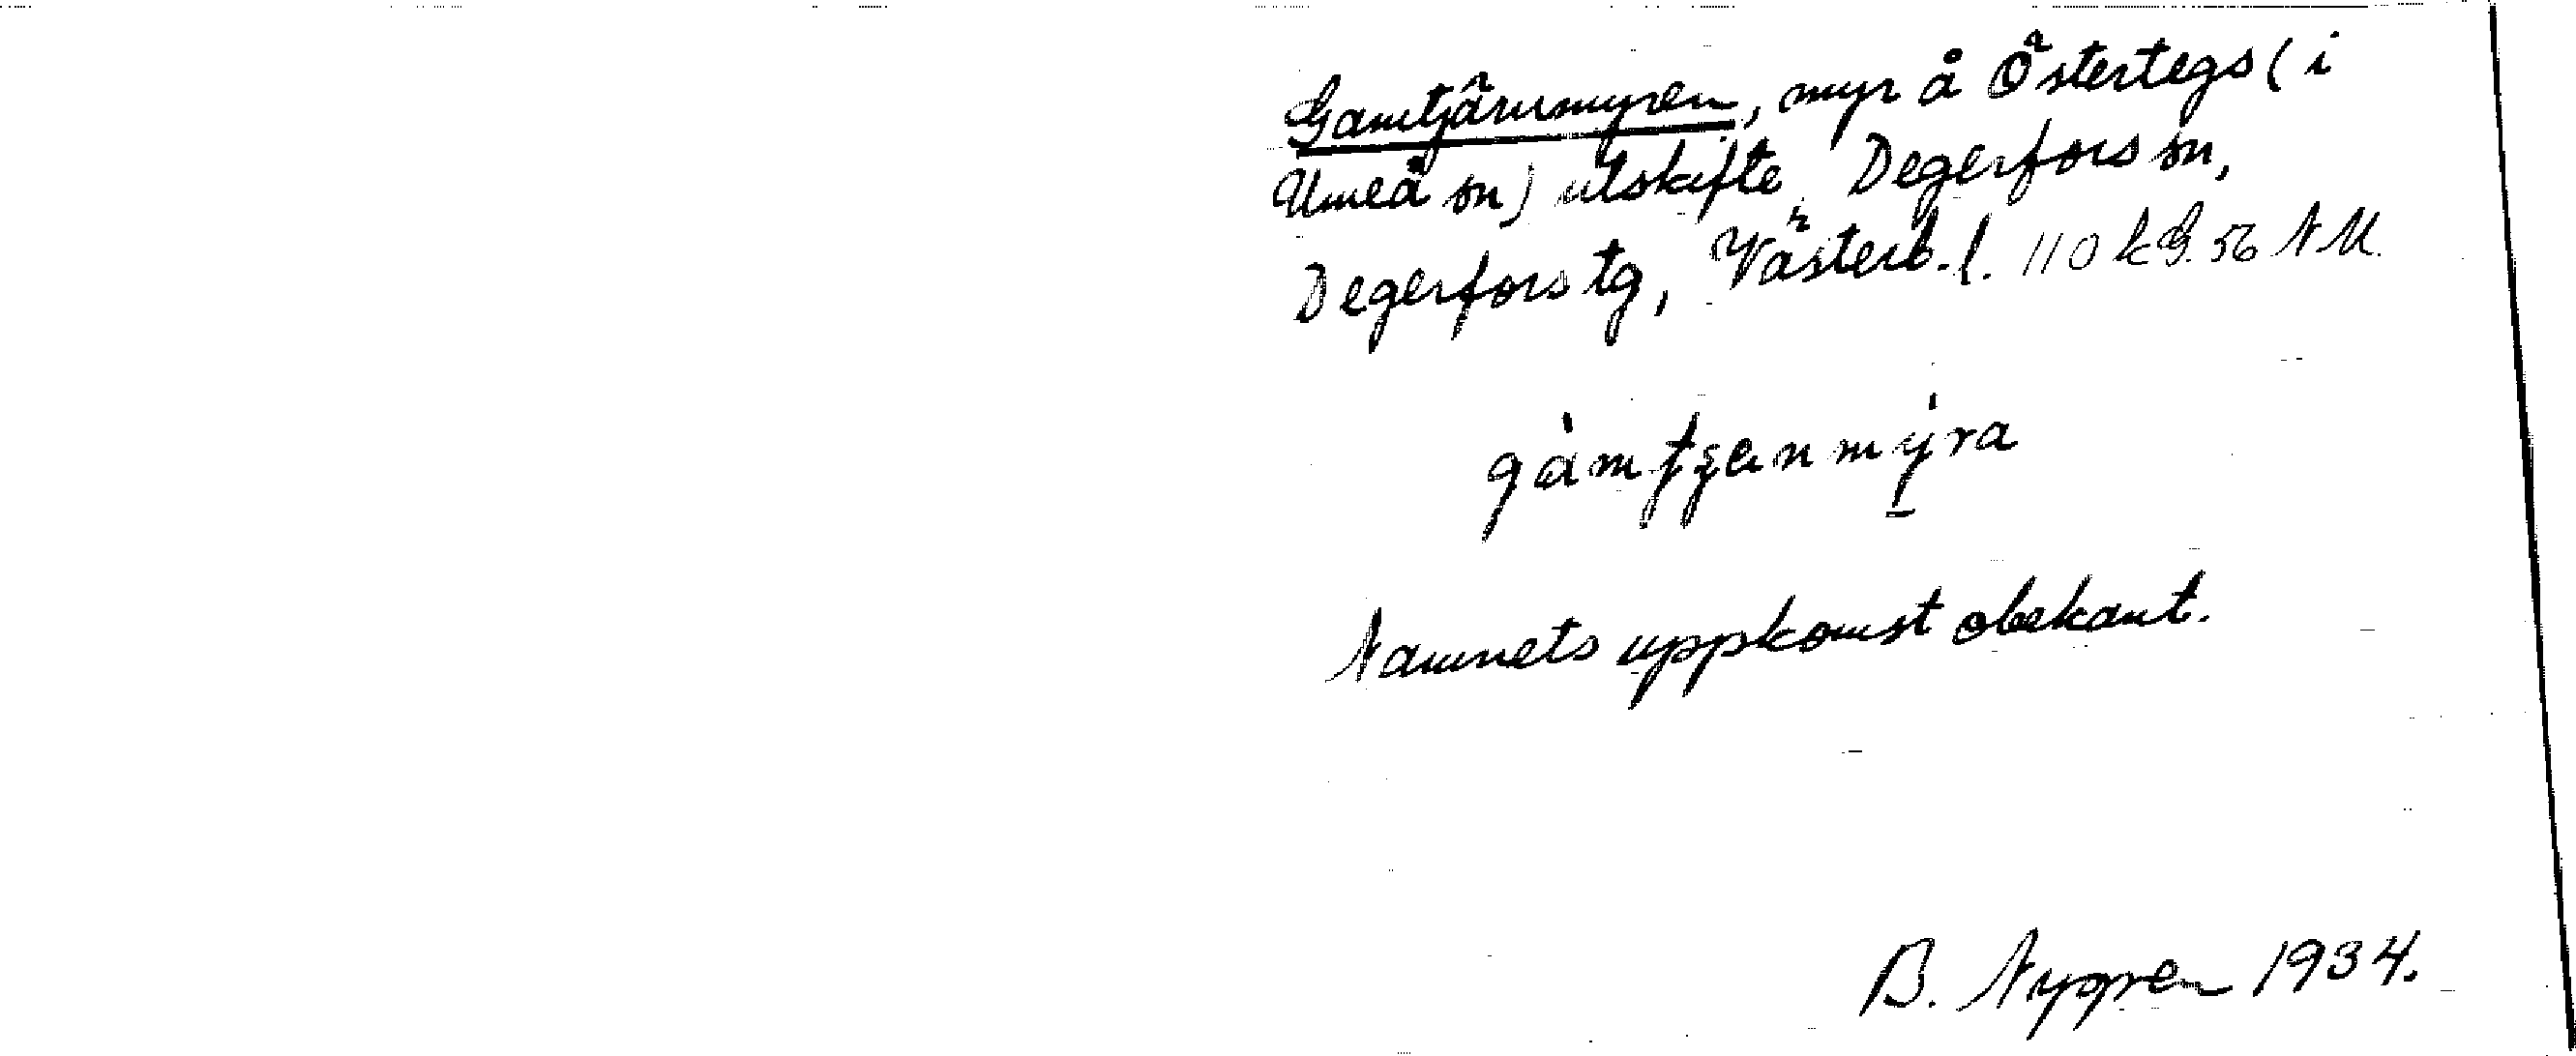 Gamtjärnmyren, myr å Östertegs (i
Umeå sn) utskifte, Degerfors sn,
Degerfors tg, Västerb. l. 110 kg. 56 NM.
gàmtʂenmýra
Namnets uppkomst obekant.
B. Nygren 1934.